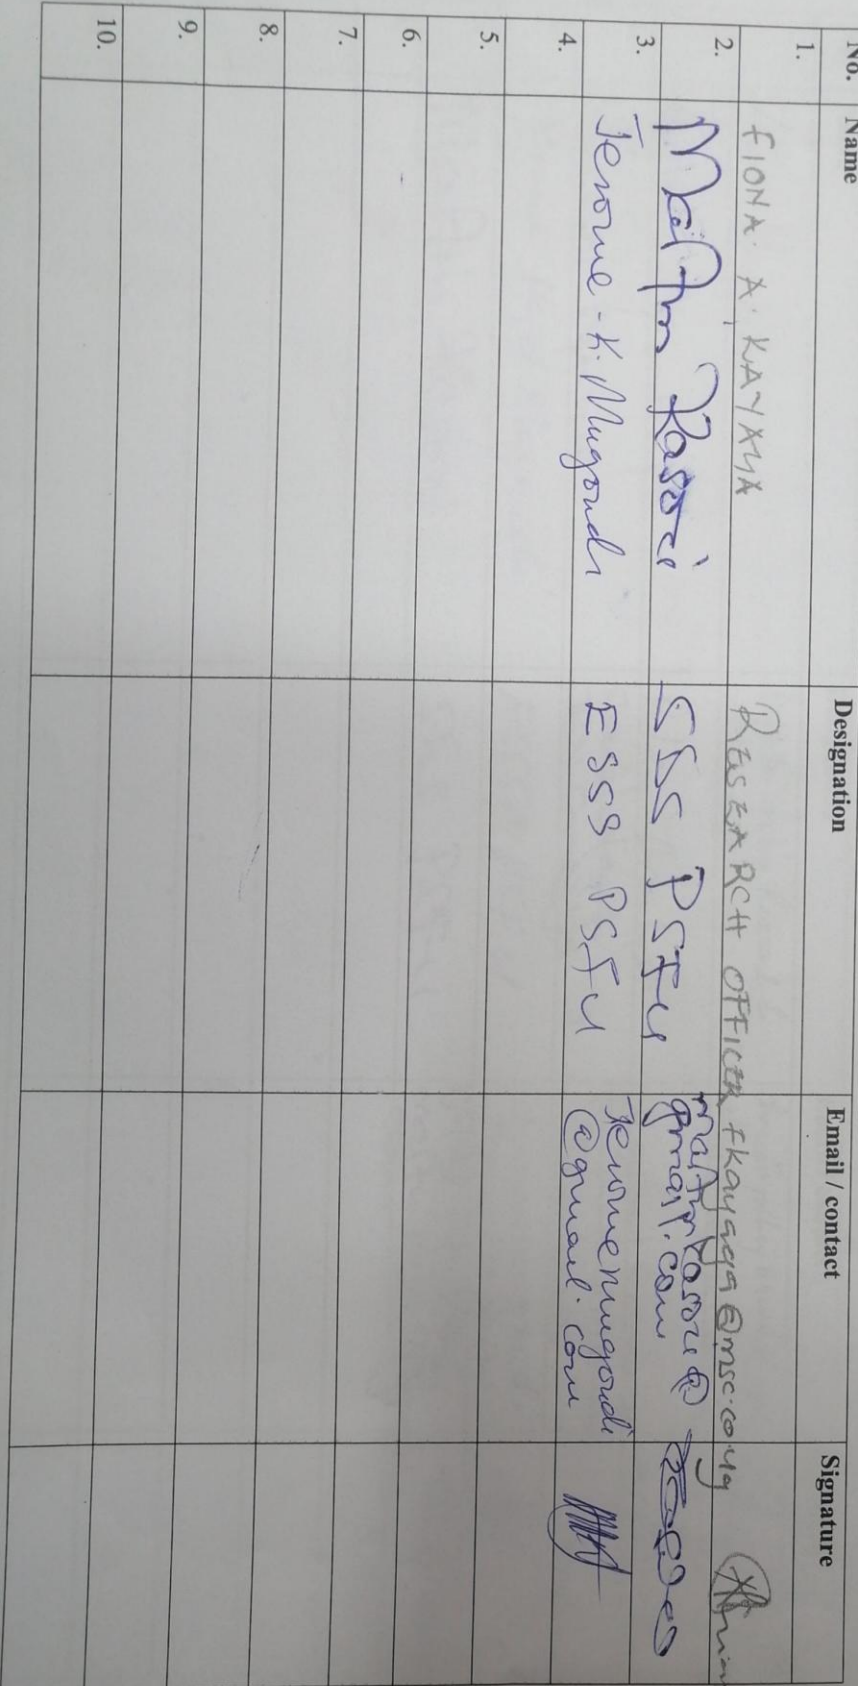 No. Name Designation Email / contact Signature
1. FIONA. A. KAYAYA RESEARCH OFFICER fkayaya@msc.co.ug
2. SSS PSFU
gmail.com
3. Jerome - K. Mugondi ESSS PSFU Jeromemugondi
@gmail.com
4.
5.
6.
7.
8.
9.
10.